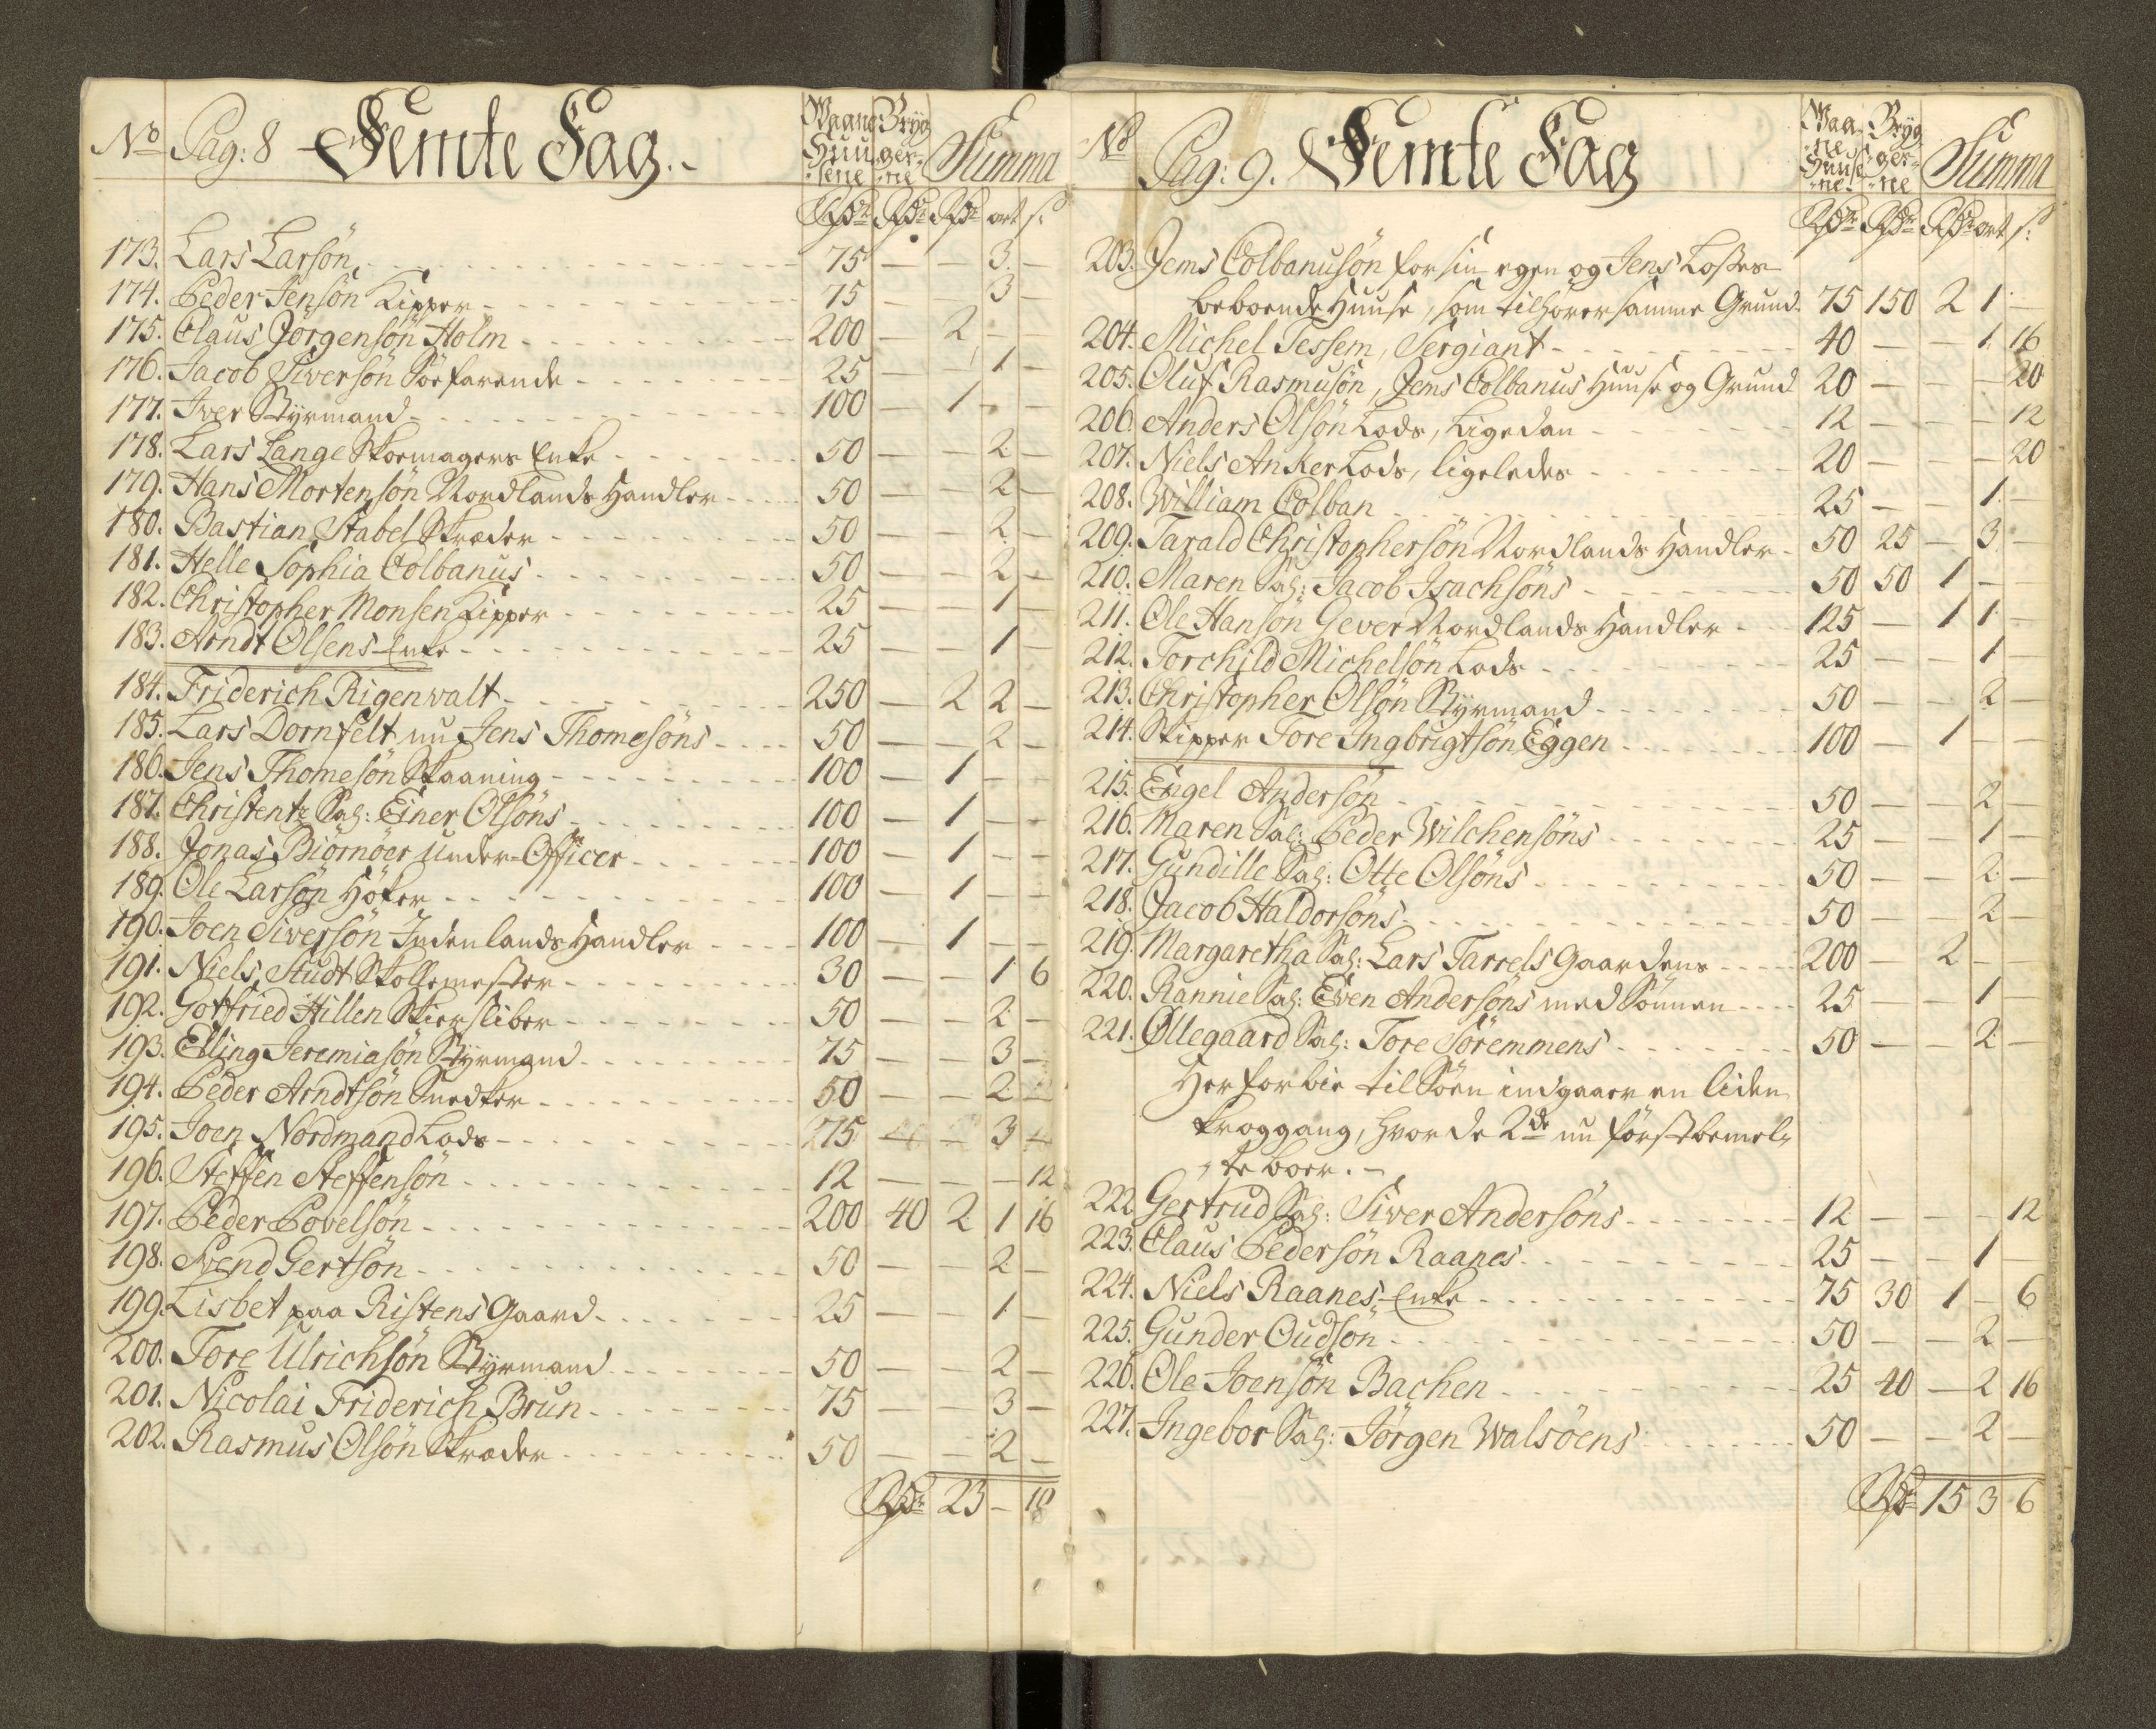 No Pag: 8 Femte Fag.
Waane Huusene Bryggerne Summa
Rdr Rdr Rdr ort s:
173. Lars Larsön 75 — — 3. —
174. Peder Jensön Kipper 75 — — 3 —
175. Claus Jörgensön Holm 200 — 2 — —
176. Jacob Siversön Söefarende 25 — — 1 —
177. Iver Styrmand 100 — 1 — —
178. Lars Lange Skoemagers Enke 50 — — 2 —
179. Hans Mortensön Nordlands Handler 50 — — 2 —
180. Bastian Stabel Skræder 50 — — 2. —
181. Helle Sophia Colbanus 50 — — 2 —
182. Christopher Monsen Kipper 25 — — 1 —
183. Arndt Olsens Enke 25 — — 1 —
184. Friderich Rigenwalt 250 — 2 2 —
185. Lars Dornfelt nu Jens Thomesöns 50 — — 2 —
186. Jens Thomesön Skaaning 100 — 1 — —
187. Christentz Sal: Einer Olsöns 100 — 1 — —
188. Jonas Biörnöer Under-Officer 100 — 1 — —
189. Ole Larsön Höker 100 — 1 — —
190. Joen Siversön Indenlands Handler 100 — 1 — —
191. Niels Studt Skollemester 30 — — 1 6
192. Gotfried Hillen Skiersliber 50 — — 2 —
193. Elling Jeremiasön Styrmand 75 — — 3 —
194. Peder Arndtsön Snedker 50 — — 2 —
195. Joen Nordmand Lods 75 — — 3 —
196. Steffen Steffensön 12 — — — 12
197. Peder Povelsön 200 40 2 1 16
198. Svend Gertsön 50 — — 2 —
199. Lisbet paa Ristens Gaard 25 — — 1 —
200. Tore Ulrichsön Styrmand 50 — — 2 —
201. Nicolai Friderich Brun 75 — — 3 —
202. Rasmus Olsön Skræder 50 — — 2 —
Rdr 23 — 10
No Pag: 9. Femte Fag
Waane Huusene Bryggerne Summa
Rdr Rdr Rdr ort s:
203. Jems Colbanusön for sin egen og Jens Losses
beboende Huuse, som tilhörer samme Grund 75 150 2 1 —
204. Michel Tessem, Sergiant 40 — — 1. 16
205. Oluf Rasmusön, Jems Colbanus Huuse og Grund 20 — — — 20
206. Anders Olsön Lods, Ligedan 12 — — — 12
207. Niels Anker Lods, ligeledes 20 — — — 20
208. William Colban 25 — — 1. —
209. Tarald Christophersön Nordlands Handler 50 25 — 3 —
210. Maren Sal: Jacob Isachsöns 50 50 1 — —
211. Ole Hansön Gever Nordlands Handler 125 — 1 1. —
212. Torchild Michelsön Lods 25 — — 1 —
213. Christopher Olsön Styrmand 50 — — 2 —
214. Skipper Tore Ingbrigtsön Eggen 100 — 1 — —
215. Engel Andersön 50 — — 2 —
216. Maren Sal: Peder Wilchensöns 25 — — 1 —
217. Gundille Sal: Otte Olsöns 50 — — 2. —
218. Jacob Haldorsöns 50 — — 2 —
219. Margaretha Sal: Lars Tarrels Gaardens 200 — 2 — —
220. Rannie Sal: Even Andersöns med Sönnen 25 — — 1 —
221. Øllegaard Sal: Tore Söremmens 50 — — 2 —
Herforbie til Söen indgaaer en liden
kroggang, hvor de 2de nu förstbemel-
te boer. —
222. Gertrud Sal: Siver Andersöns 12 — — — 12
223. Claus Pedersön Raanes 25 — — 1 —
224. Niels Raanes Enke 75 30 1 — 6
225. Gunder Oudsön 50 — — 2 —
226. Ole Joensön Bachen 25 40 — 2 16
227. Ingebor Sal: Jörgen Walsöens 50 — — 2 —
Rdr 15 3 6